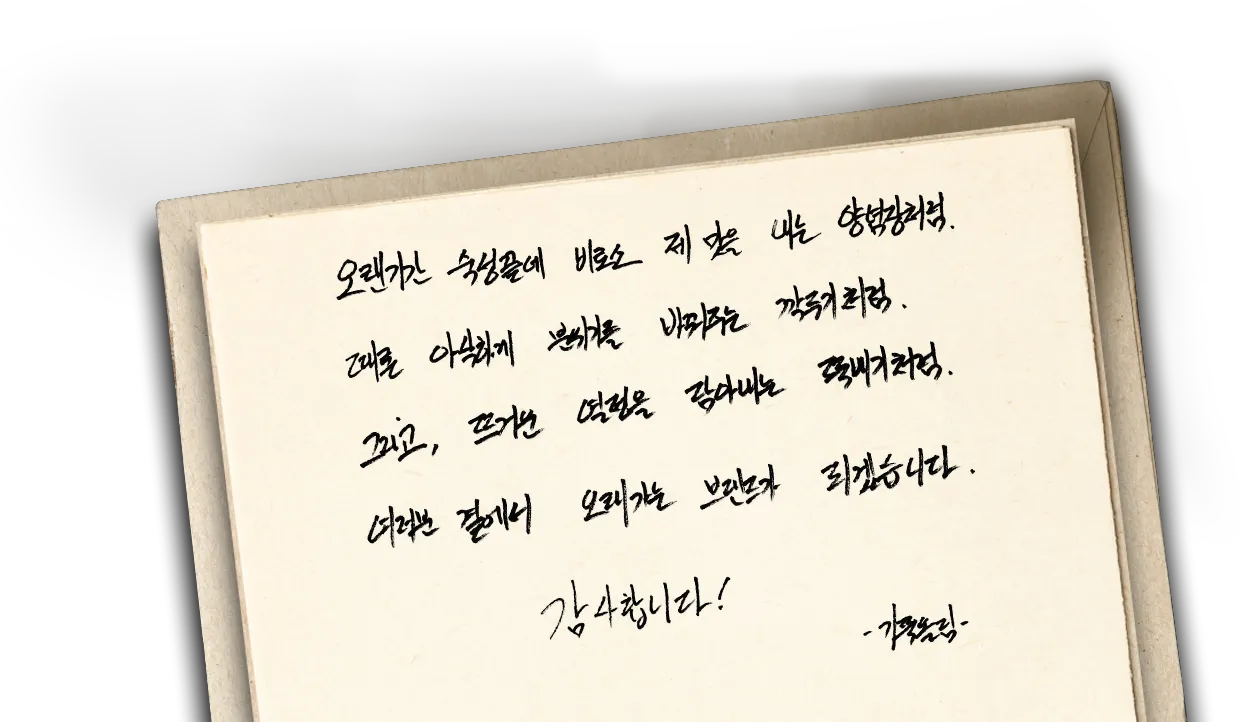 오랜기간 숙성끝에 비로소 제 맛을 내는 양념장처럼.
때론 아삭하게 분위기를 바꿔주는 깍두기처럼.
그리고, 뜨거운 열정을 담아내는 뚝배기처럼.
여러분 곁에서 오래가는 브랜드가 되겠습니다.
감사합니다!